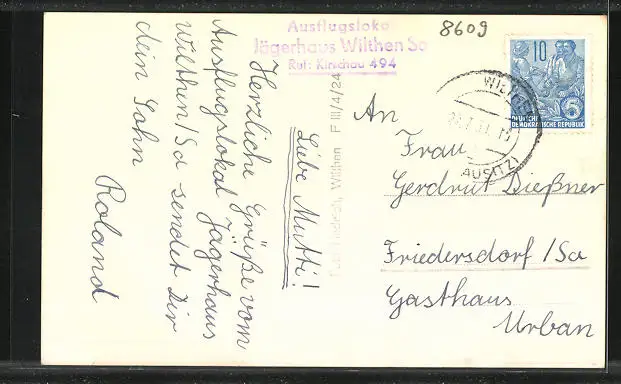 Ausflugslokal
Jägerhaus Wilthen Sa
Ruf: Kirschau 494
8609
10
DEUTSCHE
DEMOKRATISCHE REPUBLIK
5
(LAUSITZ)
Wilthen F III/4/24
Liebe Mutti!
Herzliche Grüße vom
Ausflugslokal Jägerhaus
Wilthen/Sa sendet Dir
dein Sohn
Roland
An
Frau
Gerdrut Dießner
Friedersdorf/Sa
Gasthaus
Urban